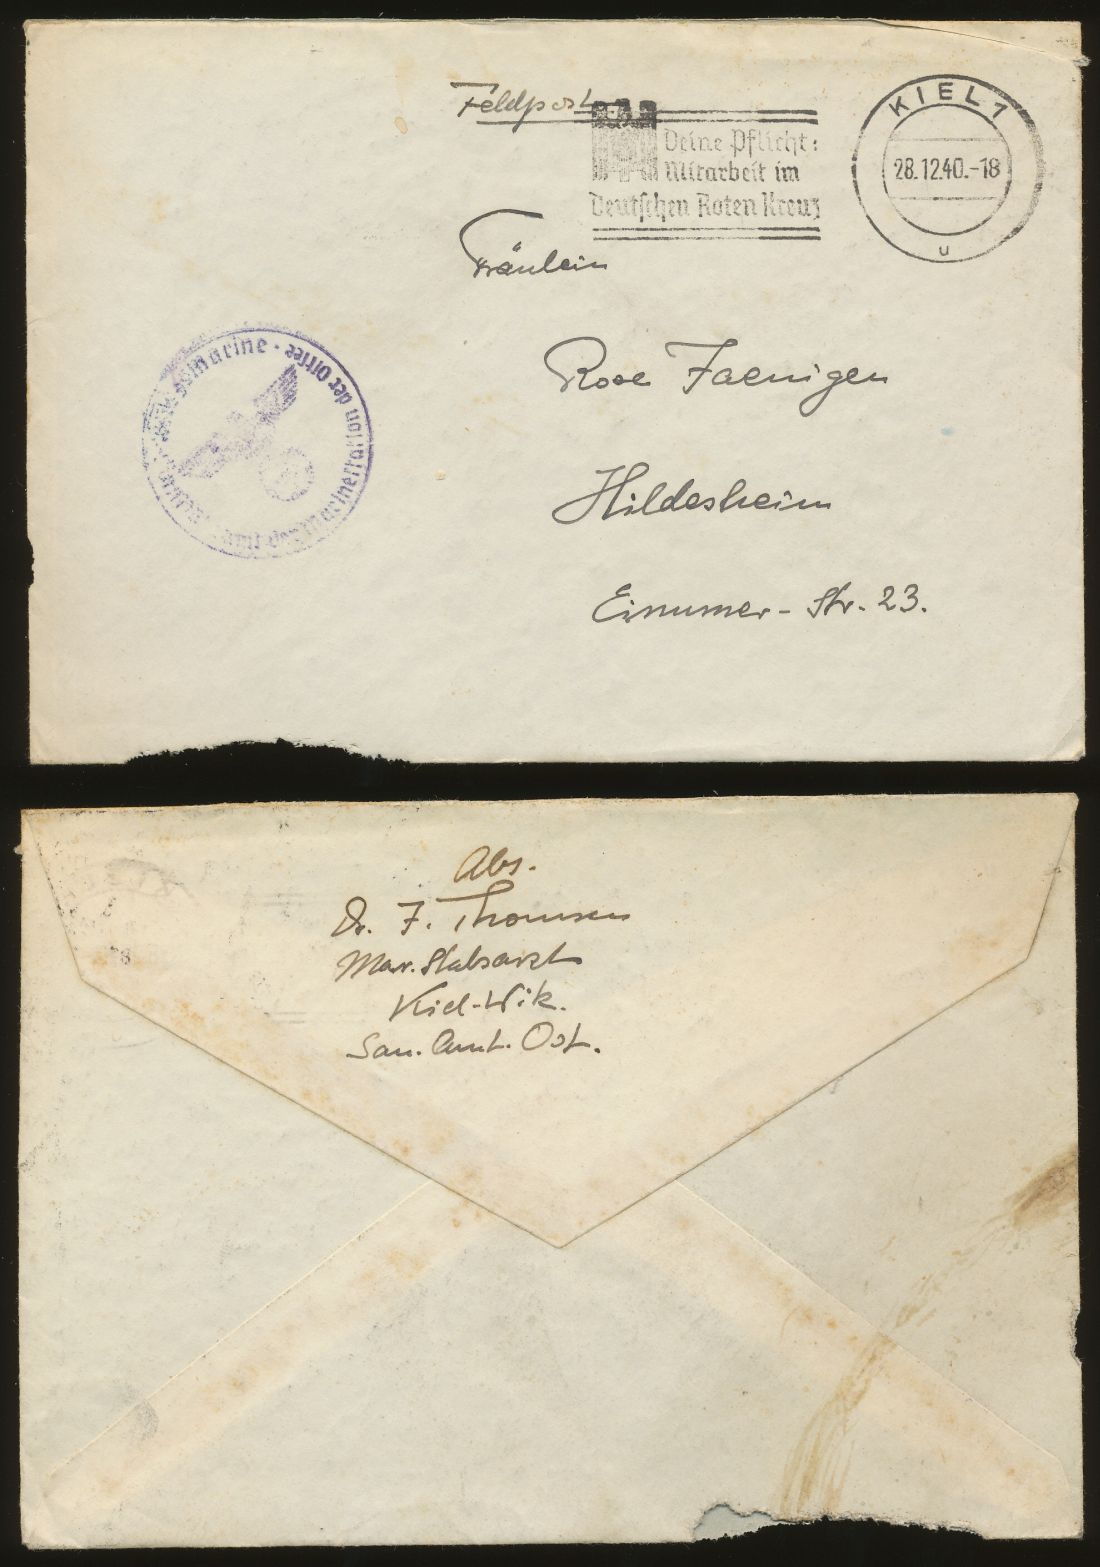 Feldpost
Deine Pflicht:
Mitarbeit im
Deutschen Roten Kreuz
KIEL 1
28.12.40.-18
u
Fräulein
Rose Jaenigen
Hildesheim
Einumer-Str. 23.
marine · der Ostsee
Marinestation
Abs.
Dr. F. Thomsen
Mar. Stabsarzt
Kiel-Wik.
San. Amt. Ost.